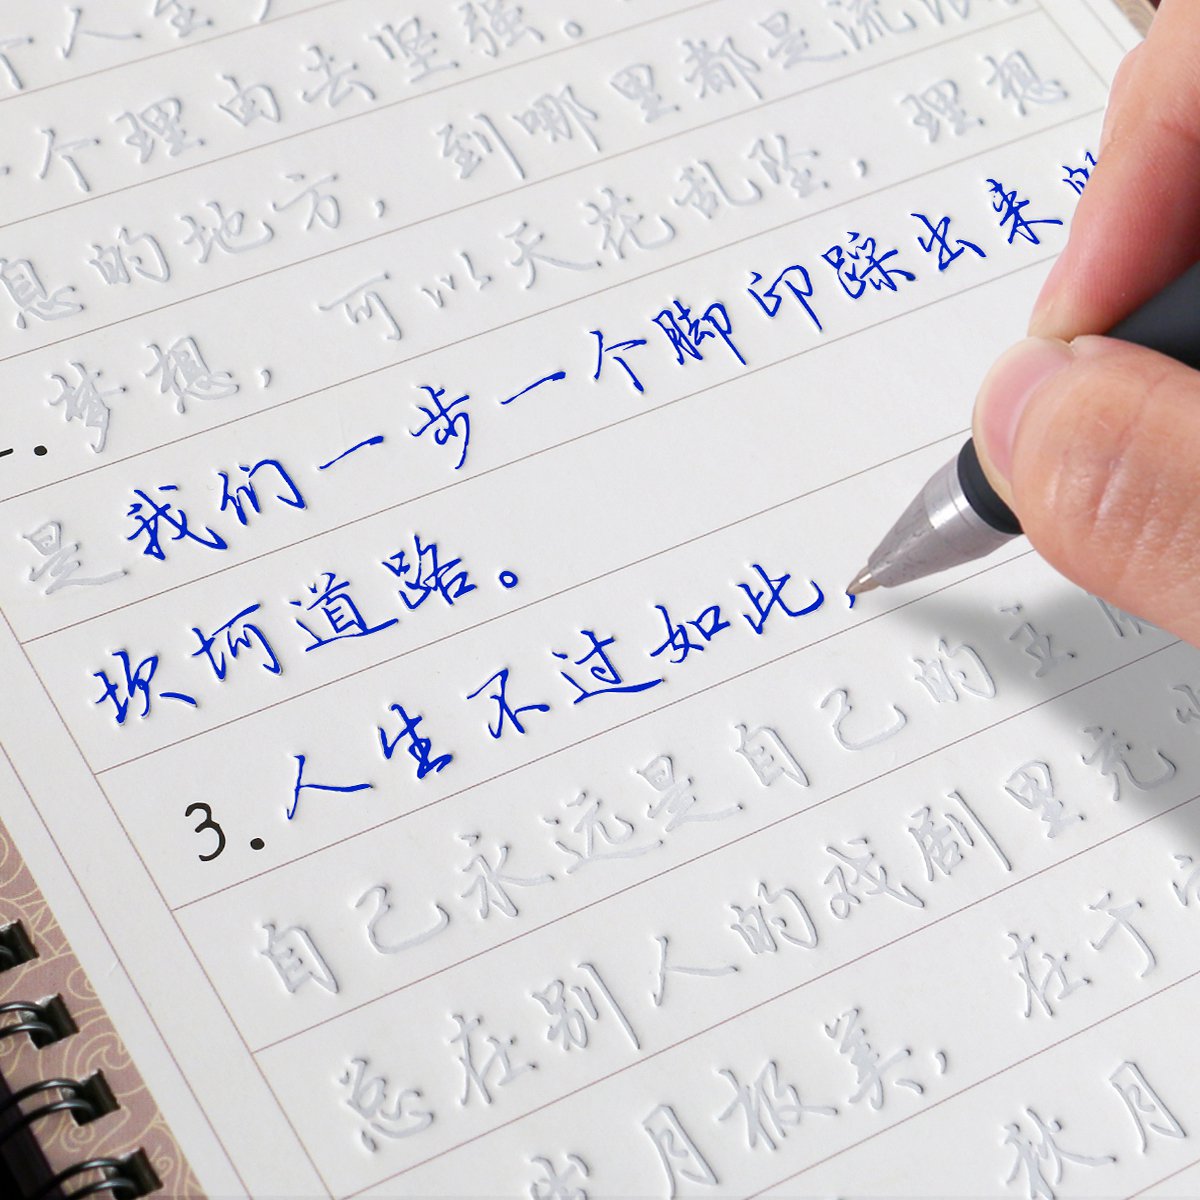 个人生
一个理由去坚强。
息的地方,到哪里都是流浪
2.梦想,可以天花乱坠,理想
是我们一步一个脚印踩出来的
坎坷道路。
3.人生不过如此,
自己永远是自己的主角
总在别人的戏剧里充
岁月极美,在于
秋月